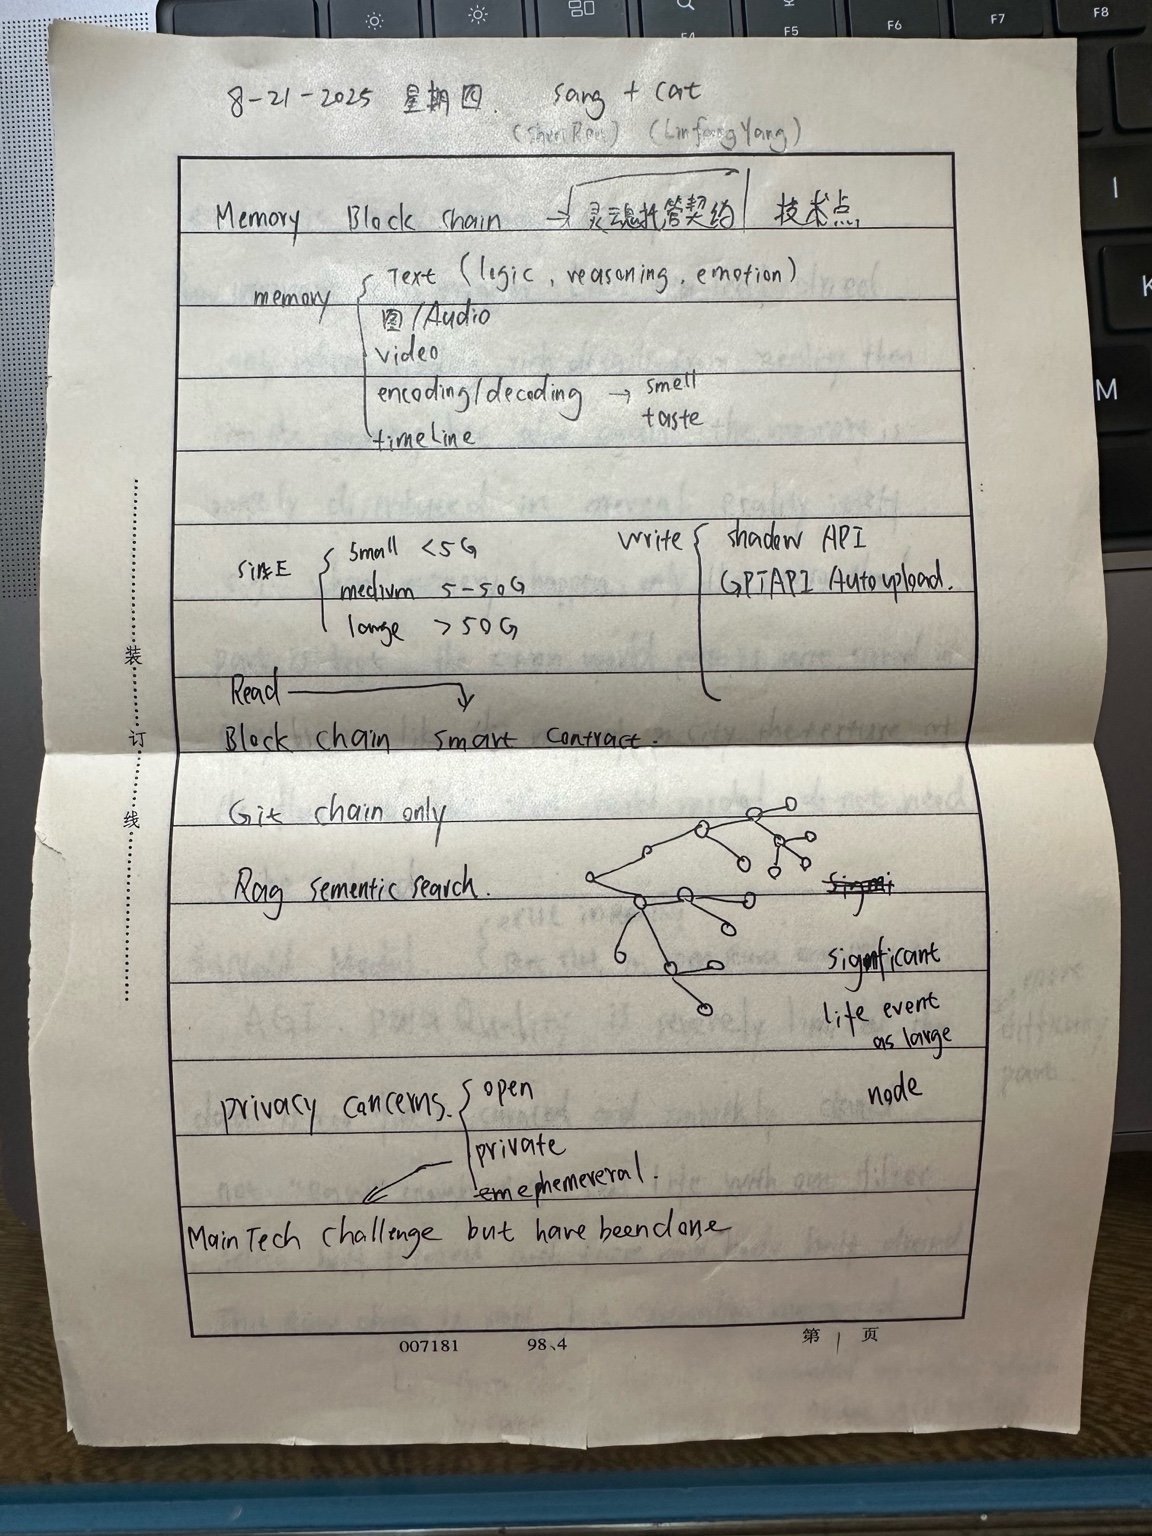 8-21-2025 星期四. sang + cat
Memory Block chain → 灵魂托管契约 技术点
memory { Text (logic, reasoning, emotion)
图/Audio
video
encoding/decoding → smell
taste
timeline
sizE { Small <5G
medium 5-50G
large >50G
write { shadow API
GPTAPI Autoupload.
Read
Block chain smart contract.
Git chain only
Rag sementic search.
significant
life event
as large
node
privacy cancerns. { open
private
emephemeveral.
Main Tech challenge but have been done
装
订
线
007181 98.4 第 1 页
F5 F6 F7 F8
I
K
M